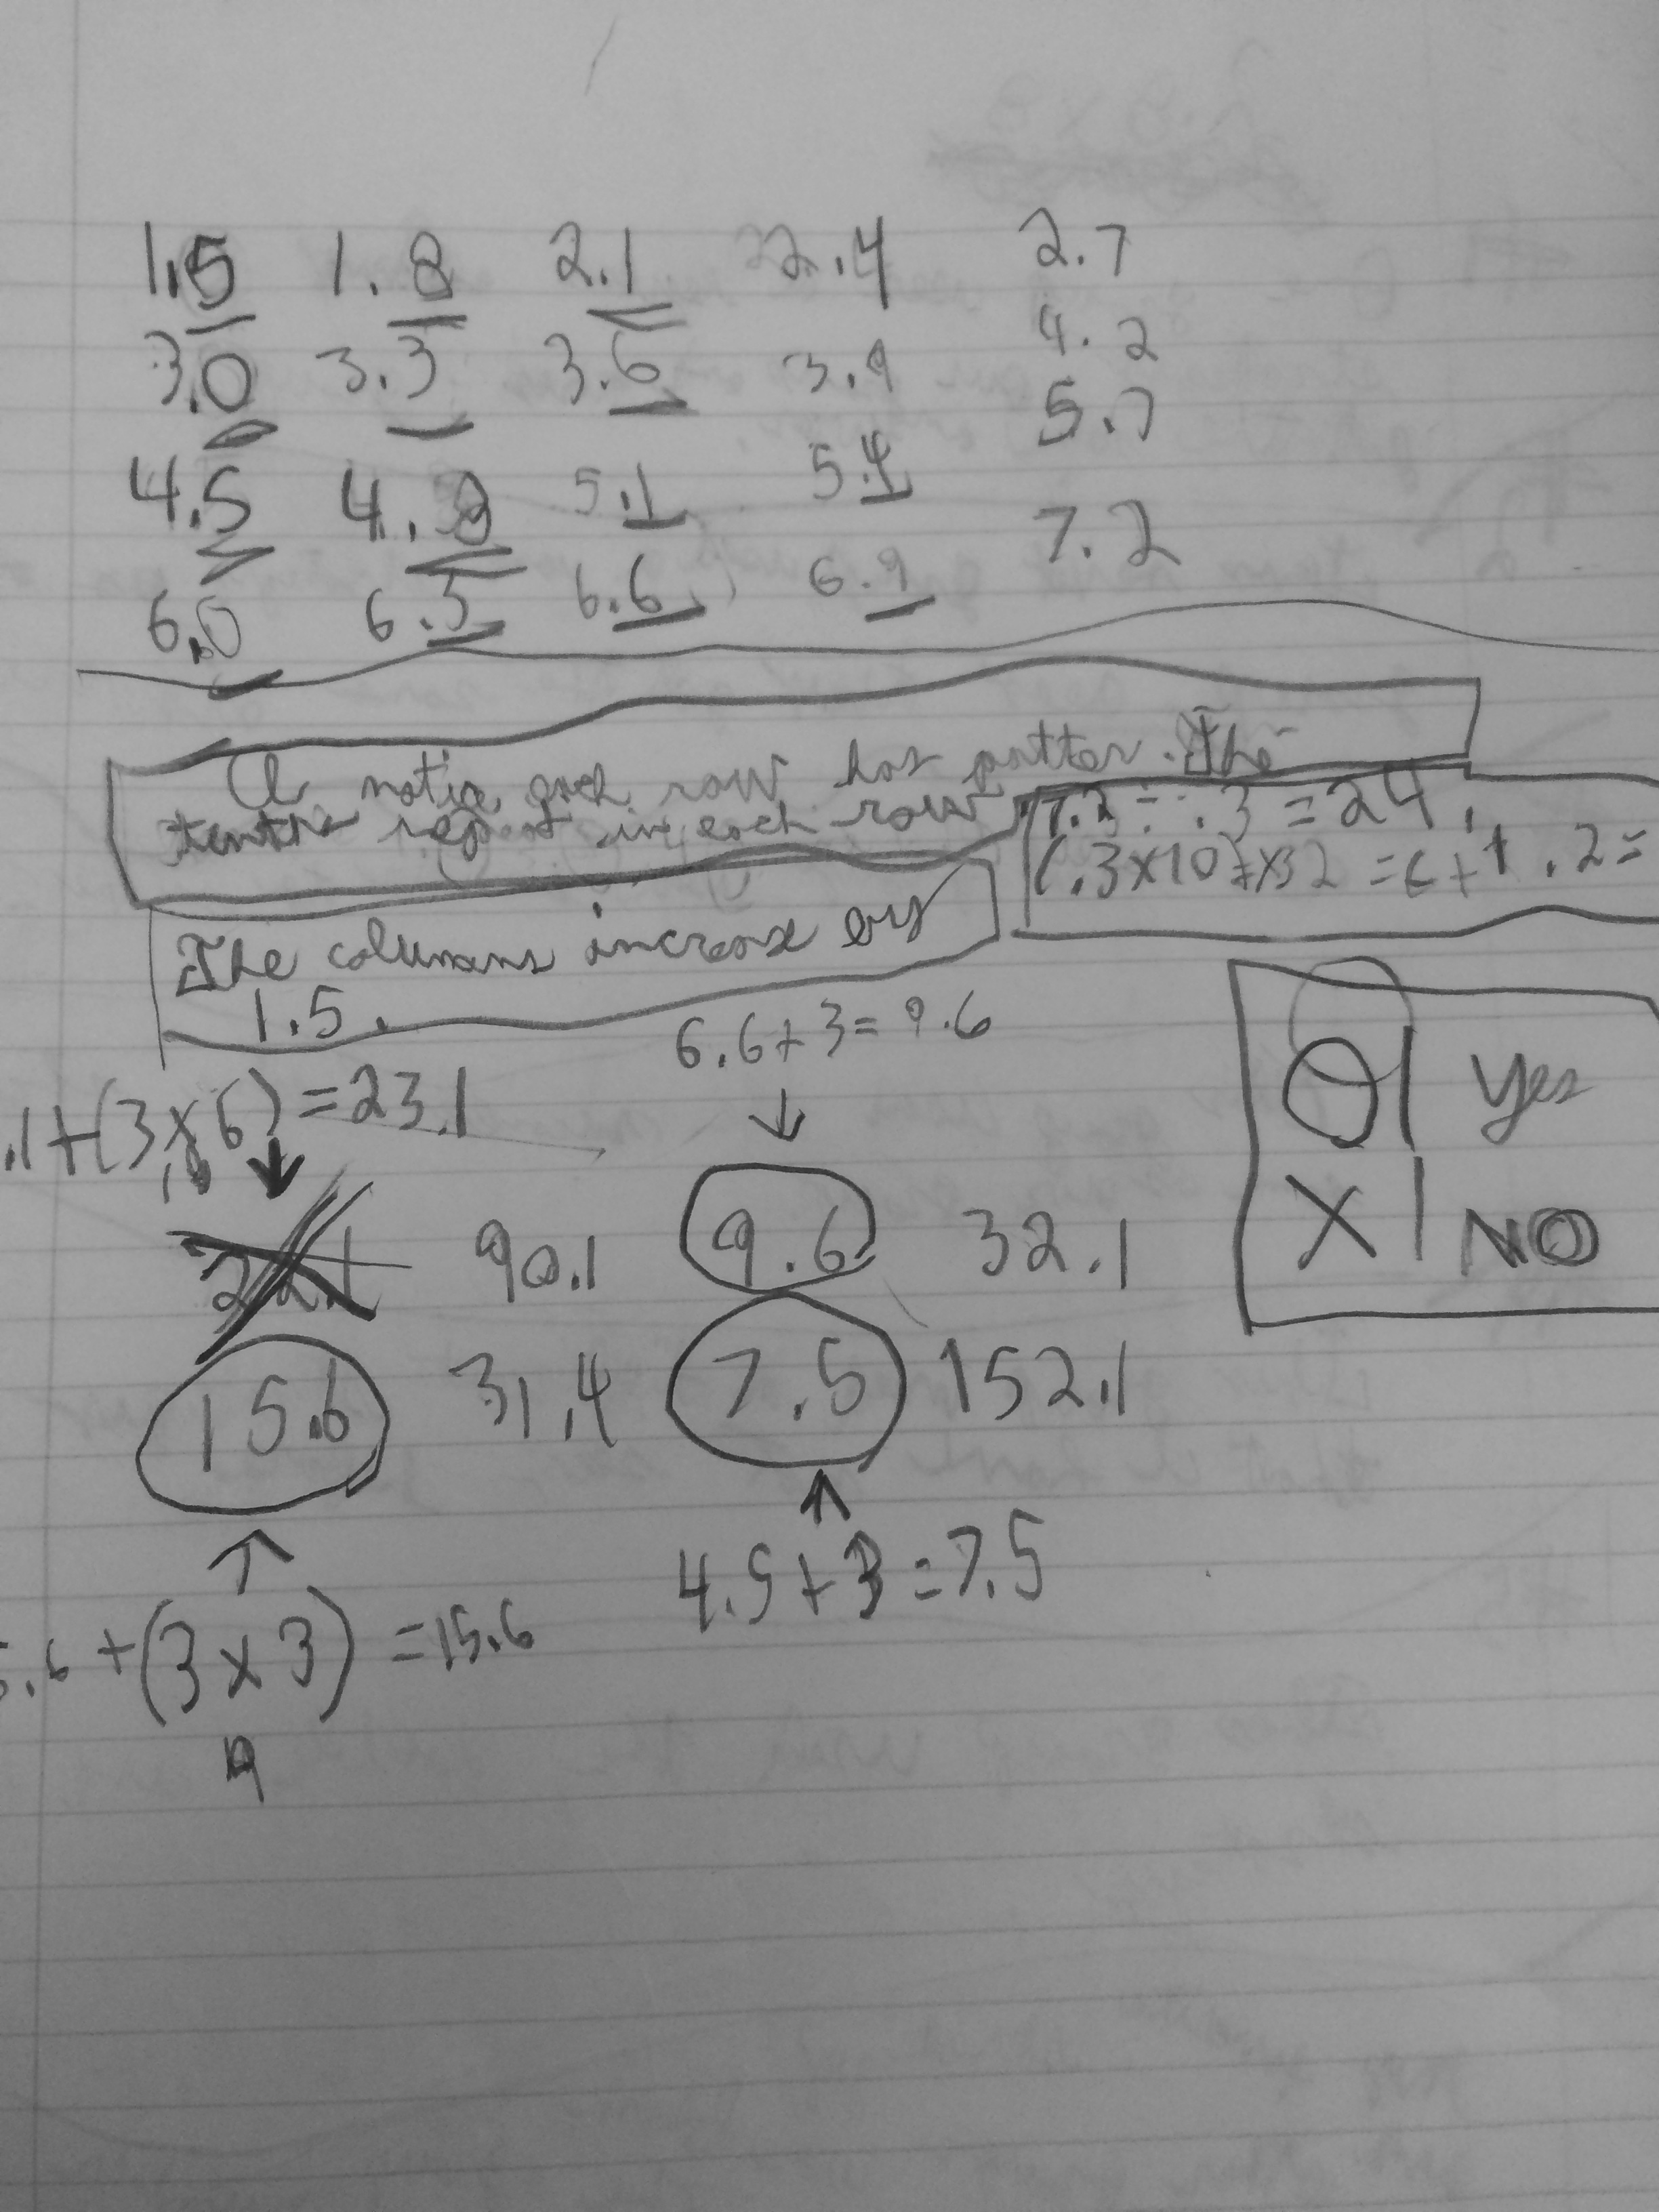 1.5 1.8 2.1 2.4 2.7
3.0 3.3 3.6 3.9 4.2
4.5 4.8 5.1 5.4 5.7
6.0 6.3 6.6 6.9 7.2
I notice each row has patter. The
tenths repeat in each row
7.2 ÷ .3 = 24
(.3x10) x 2 = 6 + 1.2 =
The columns increase by
1.5.
6.6+3=9.6
.1+(3x6)=23.1
18
22.1 90.1 9.6 32.1
15.6 31.4 7.5 152.1
O| Yes
X| NO
4.5+3=7.5
6.6+(3x3)=15.6
9